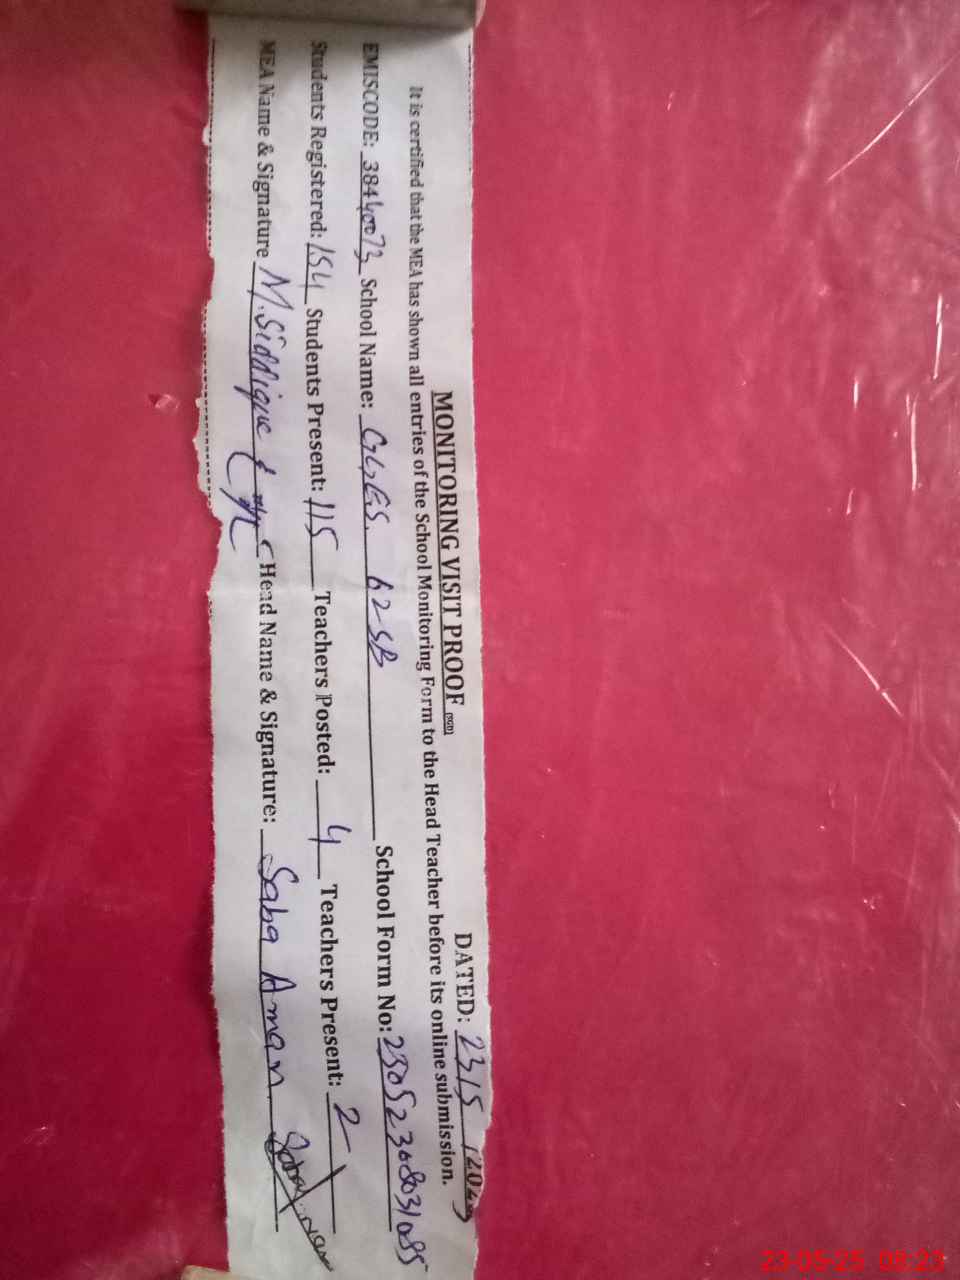 MONITORING VISIT PROOF
DATED: 23/5/202
It is certified that the MEA has shown all entries of the School Monitoring Form to the Head Teacher before its online submission.
EMISCODE: 38440073 School Name: GGES. 62-SB School Form No: 23052308031085
Students Registered: 154 Students Present: 115 Teachers Posted: 4 Teachers Present: 2
MEA Name & Signature M. Siddique Head Name & Signature: Saba Aman
23-05-25 08:23